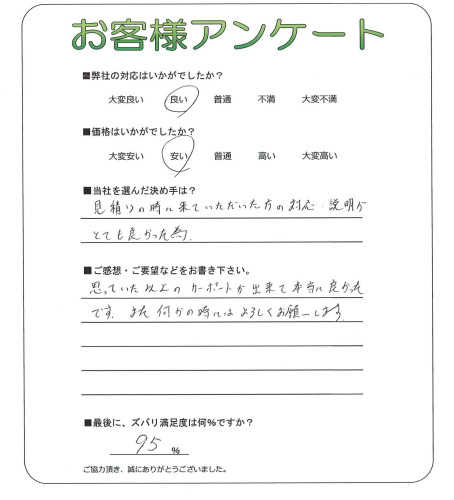 お客様アンケート
■弊社の対応はいかがでしたか?
大変良い 良い 普通 不満 大変不満
■価格はいかがでしたか?
大変安い 安い 普通 高い 大変高い
■当社を選んだ決め手は?
見積りの時に来ていただいた方の対応、説明が
とても良かった為
■ご感想・ご要望などをお書き下さい。
思っていた以上のカーポートが出来て本当に良かった
です。また何かの時にはよろしくお願いします。
■最後に、ズバリ満足度は何%ですか?
95 %
ご協力頂き、誠にありがとうございました。